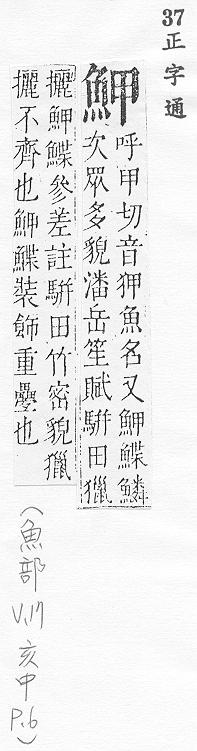 37 正字通
魻 呼甲切音狎魚名又魻鰈鱗
次眾多貌潘岳笙賦騈田獵
攦魻鰈參差註騈田竹密貌獵
攦不齊也魻鰈裝飾重疊也
(魚部
亥中
P.6)